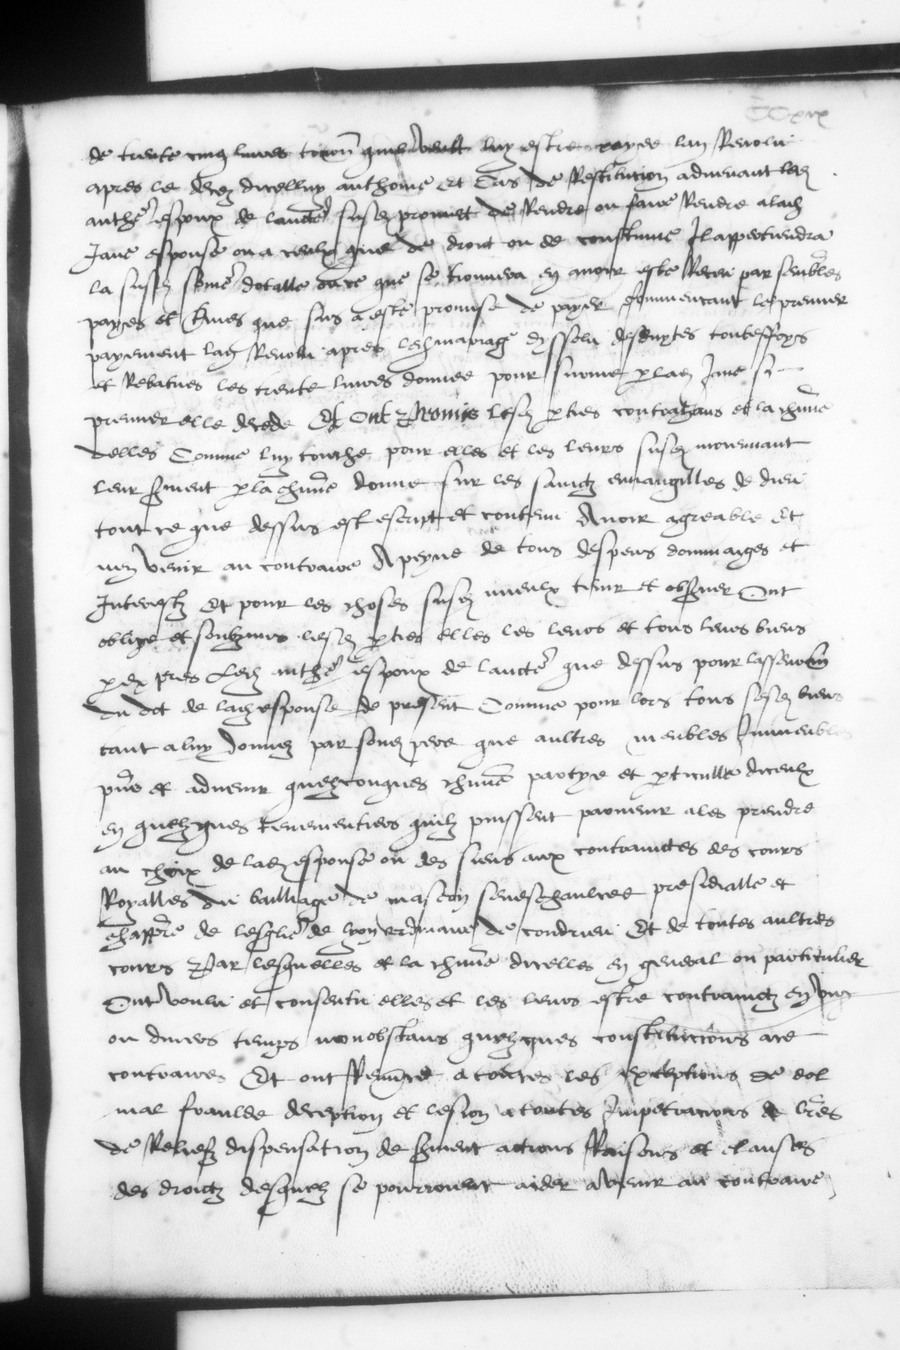 CCxix
de trente cinq livres tourn qui veult luy estre payee lan Revolu
apres le decez dicelluy anthoine Et Cas de Restitution advenant led
anthe espoux de lauctte susd promect de Rendre ou faire Rendre a lad
Jane espouse ou a ceulx que de droict ou de coustume Il appertiendra
la susd some dotalle du ce que se trouvera en avoir este Receu par semblables
payes et termes que sus a este promise de payer commencant le premier
payement lad Revolu apres led mariage dissolu desduytes touteffoys
et Rebatues les trente livres donnee pour par lad Jane si
premier elle decede Et Ont promis lesd parties contrahans et la chune
delles Comme luy touche pour elles et les leurs susd moienant
leur serment par la chune donne sur les sainctz euvangilles de dieu
tout ce que dessus est escript et contenu Avoir agreable Et
non venir au contraire A peyne de tous despens dommaiges et
Interestz Et pour les choses susd mieulx tenir et observer Ont
oblige et soubzmis lesd parties elles les leurs et tous leurs biens
par expres led anthe espoux de lauctte que dessus pour lasseurem
du dot de lad espouse de present Comme pour lors tous sesd biens
tant a luy donnez par sond pere que aultres meubles Immeubles
pns et advenir quelzconques chune partye et particulle diceulx
en quelzques tenementiers quilz puissent parvenir a les prendre
au choix de lad espouse ou des siens aux contrainctes des cours
Royalles du bailliage de mascon seneschaulcee presidialle et
de lesglise de lyon de condrieu Et de toutes aultres
cours Par lesquelles et la chune dicelles en general ou particulier
Ont voulu et consentu elles et les leurs estre contrainctz en
ou divers temps nonobstans quelzques constitutions a ce
contraires Et ont Renuncé a toutes les exceptions de dol
mal fraulde deception et lesion a toutes Impetracions de lres
de Reliefz dispensation de serment actions Raisons et clauses
des droictz desquelz se pourroient aider a venir au contraire